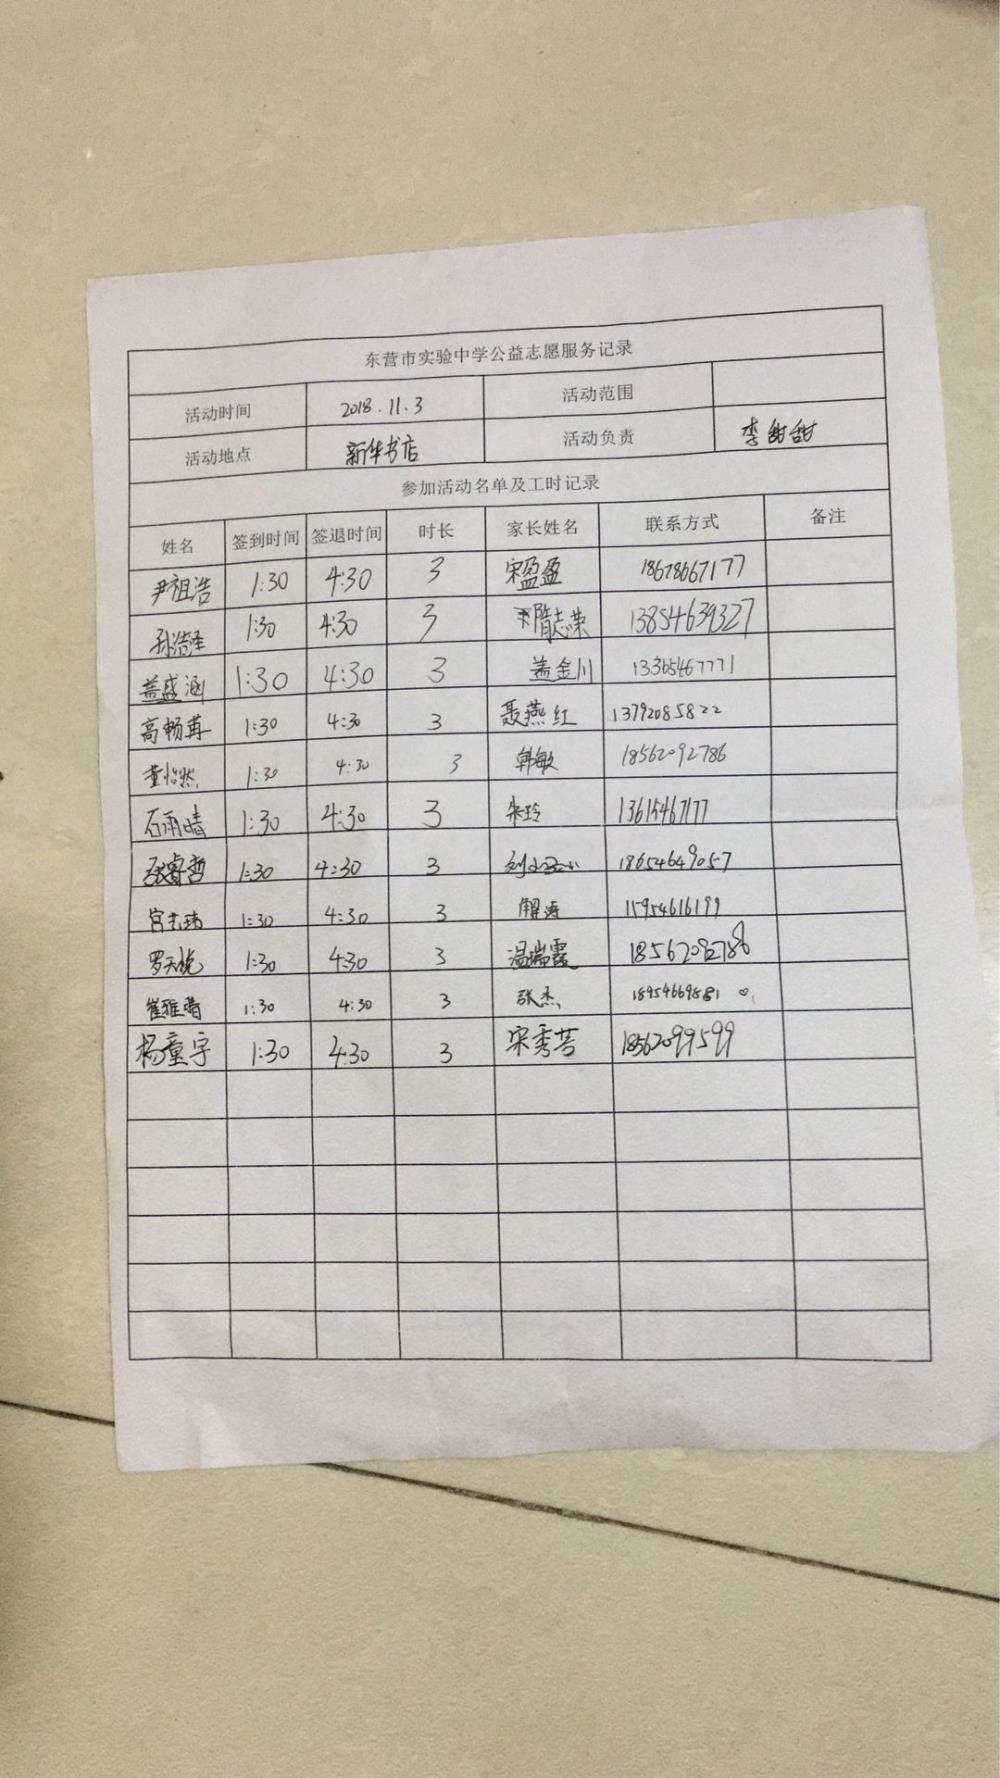 东营市实验中学公益志愿服务记录
活动时间 2018.11.3 活动范围
活动地点 新华书店 活动负责 李甜甜
参加活动名单及工时记录
姓名 签到时间 签退时间 时长 家长姓名 联系方式 备注
尹祖浩 1:30 4:30 3 宋盈盈 18678667177
孙浩泽 1:30 4:30 3 隋志荣 13854639327
盖盛涵 1:30 4:30 3 盖金川 13365467771
高畅苒 1:30 4:30 3 聂燕红 13792085822
董怡然 1:30 4:30 3 韩敏 18562092786
石雨晴 1:30 4:30 3 朱玲 13615467177
张睿哲 1:30 4:30 3 18654649057
宫志玮 1:30 4:30 3 解涛 15954616199
罗天悦 1:30 4:30 3 温瑞霞 18562092786
崔雅晴 1:30 4:30 3 张杰 18954669881
杨童宇 1:30 4:30 3 宋秀芳 18562099599